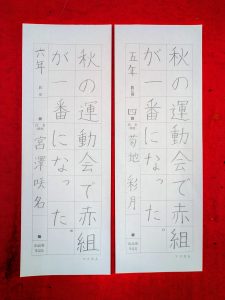 秋の運動会で赤組
が一番になった
五年
四
菊地彩月
秋の運動会で赤組
が一番になった
六年
宮澤咲名